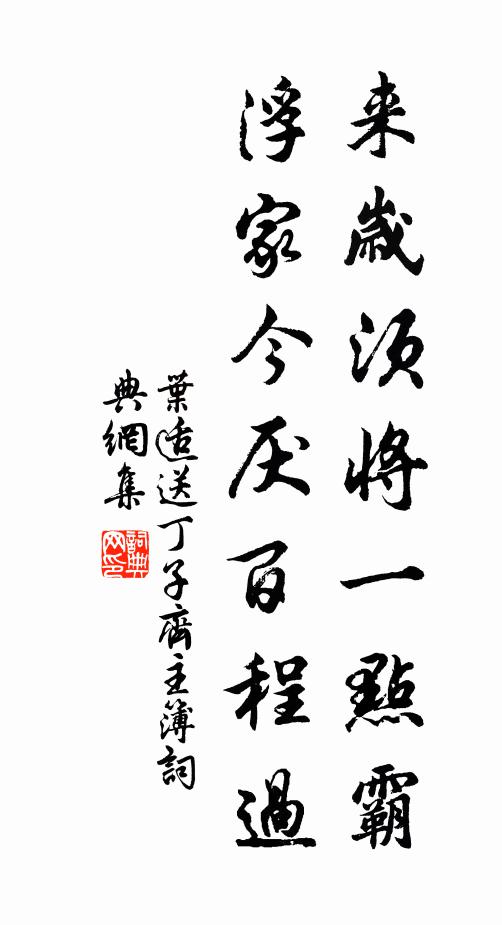 来歲須將一點霸
浮家今厌百程過
葉适送丁子齊主簿詞
典網集
詞典网印